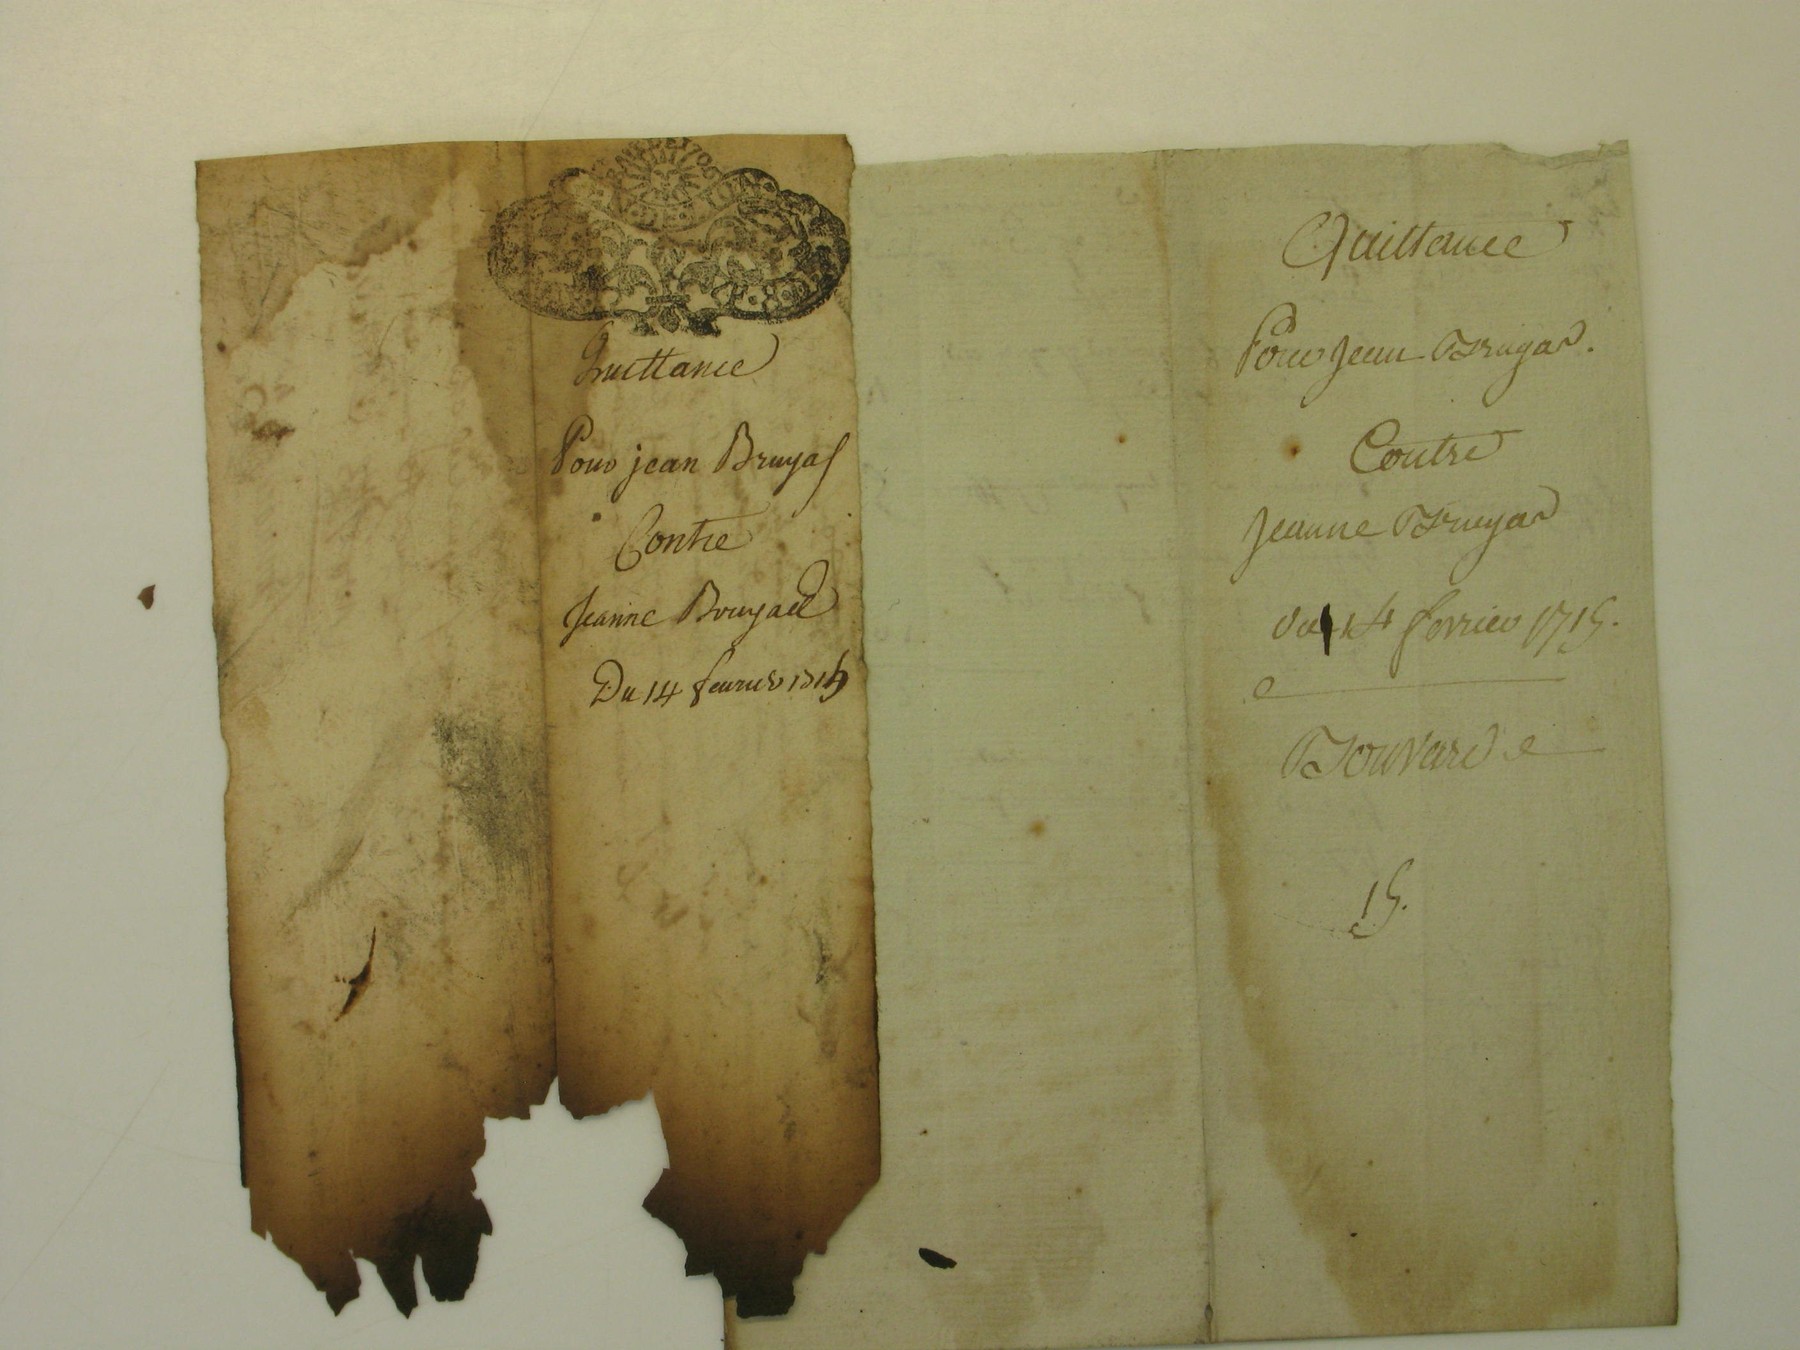 Quittance
Pour jean Bruyas
Contre
Jeanne Bruyas
Du 14 feurier 1715
Quittance
Pour Jean Bruyas.
Contre
Jeanne Bruyas
du 14 fevrier 1715.
Bouvard
15.